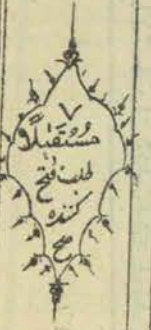 ٧
مستقبلاً
طلب فتح
كننده
صح